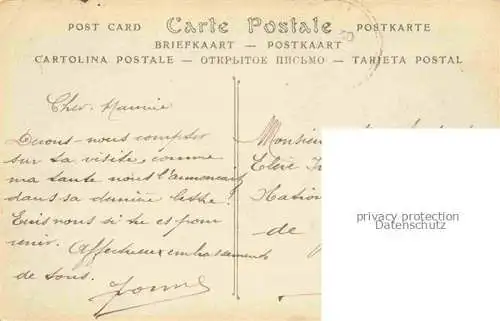 POST CARD Carte Postale POSTKARTE
BRIEFKAART — POSTKAART
CARTOLINA POSTALE — ОТКРЫТОЕ ПИСЬМО — TARJETA POSTAL
Cher Maurice
Devons-nous compter
sur ta visite, comme
ma tante nous l'annonçait
dans sa dernière lettre ?
Ecris nous si tu es pour
venir. Affectueux embrassements
de tous.
Monsieur
Elève
Nation
de
privacy protection
Datenschutz